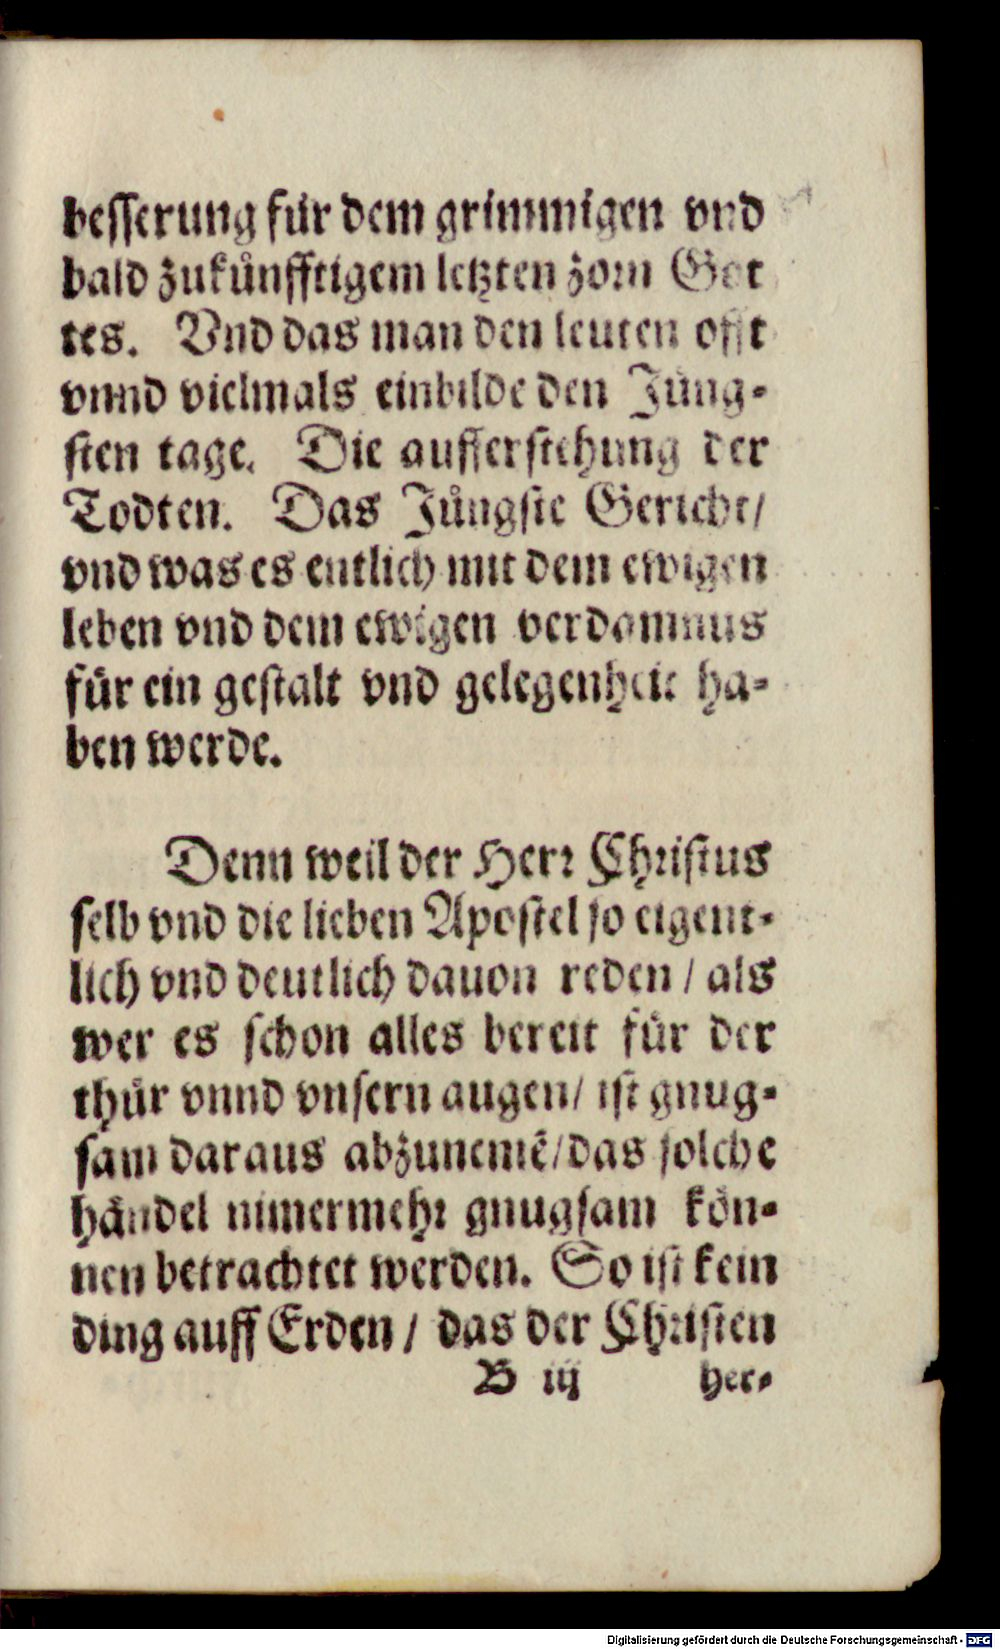 besserung für dem grimmigen vnd
bald zukünfftigem letzten zorn Got
tes. Vnd das man den leuten offt
vnnd vielmals einbilde den Jüng-
sten tage. Die aufferstehung der
Todten. Das Jüngste Gericht/
vnd was es entlich mit dem ewigen
leben vnd dem ewigen verdamnus
für ein gestalt vnd gelegenheit ha-
ben werde.
Denn weil der Herr Christus
selb vnd die lieben Apostel so eigent-
lich vnd deutlich dauon reden / als
wer es schon alles bereit für der
thür vnnd vnsern augen/ ist gnug-
sam daraus abzunemē/das solche
händel nimermehr gnugsam kön-
nen betrachtet werden. So ist kein
ding auff Erden / das der Christen
B iij her-
Digitalisierung gefördert durch die Deutsche Forschungsgemeinschaft - DFG